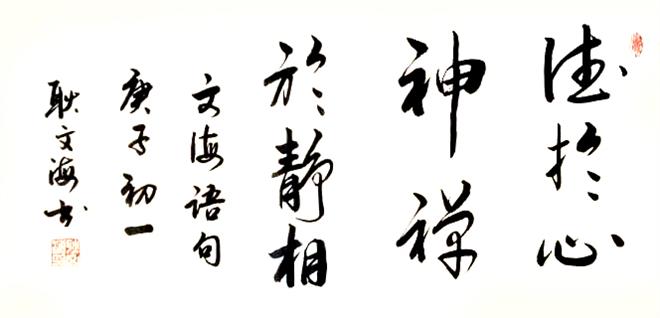 德於心
神禅
於静相
文海语句
庚子初一
耿文海书